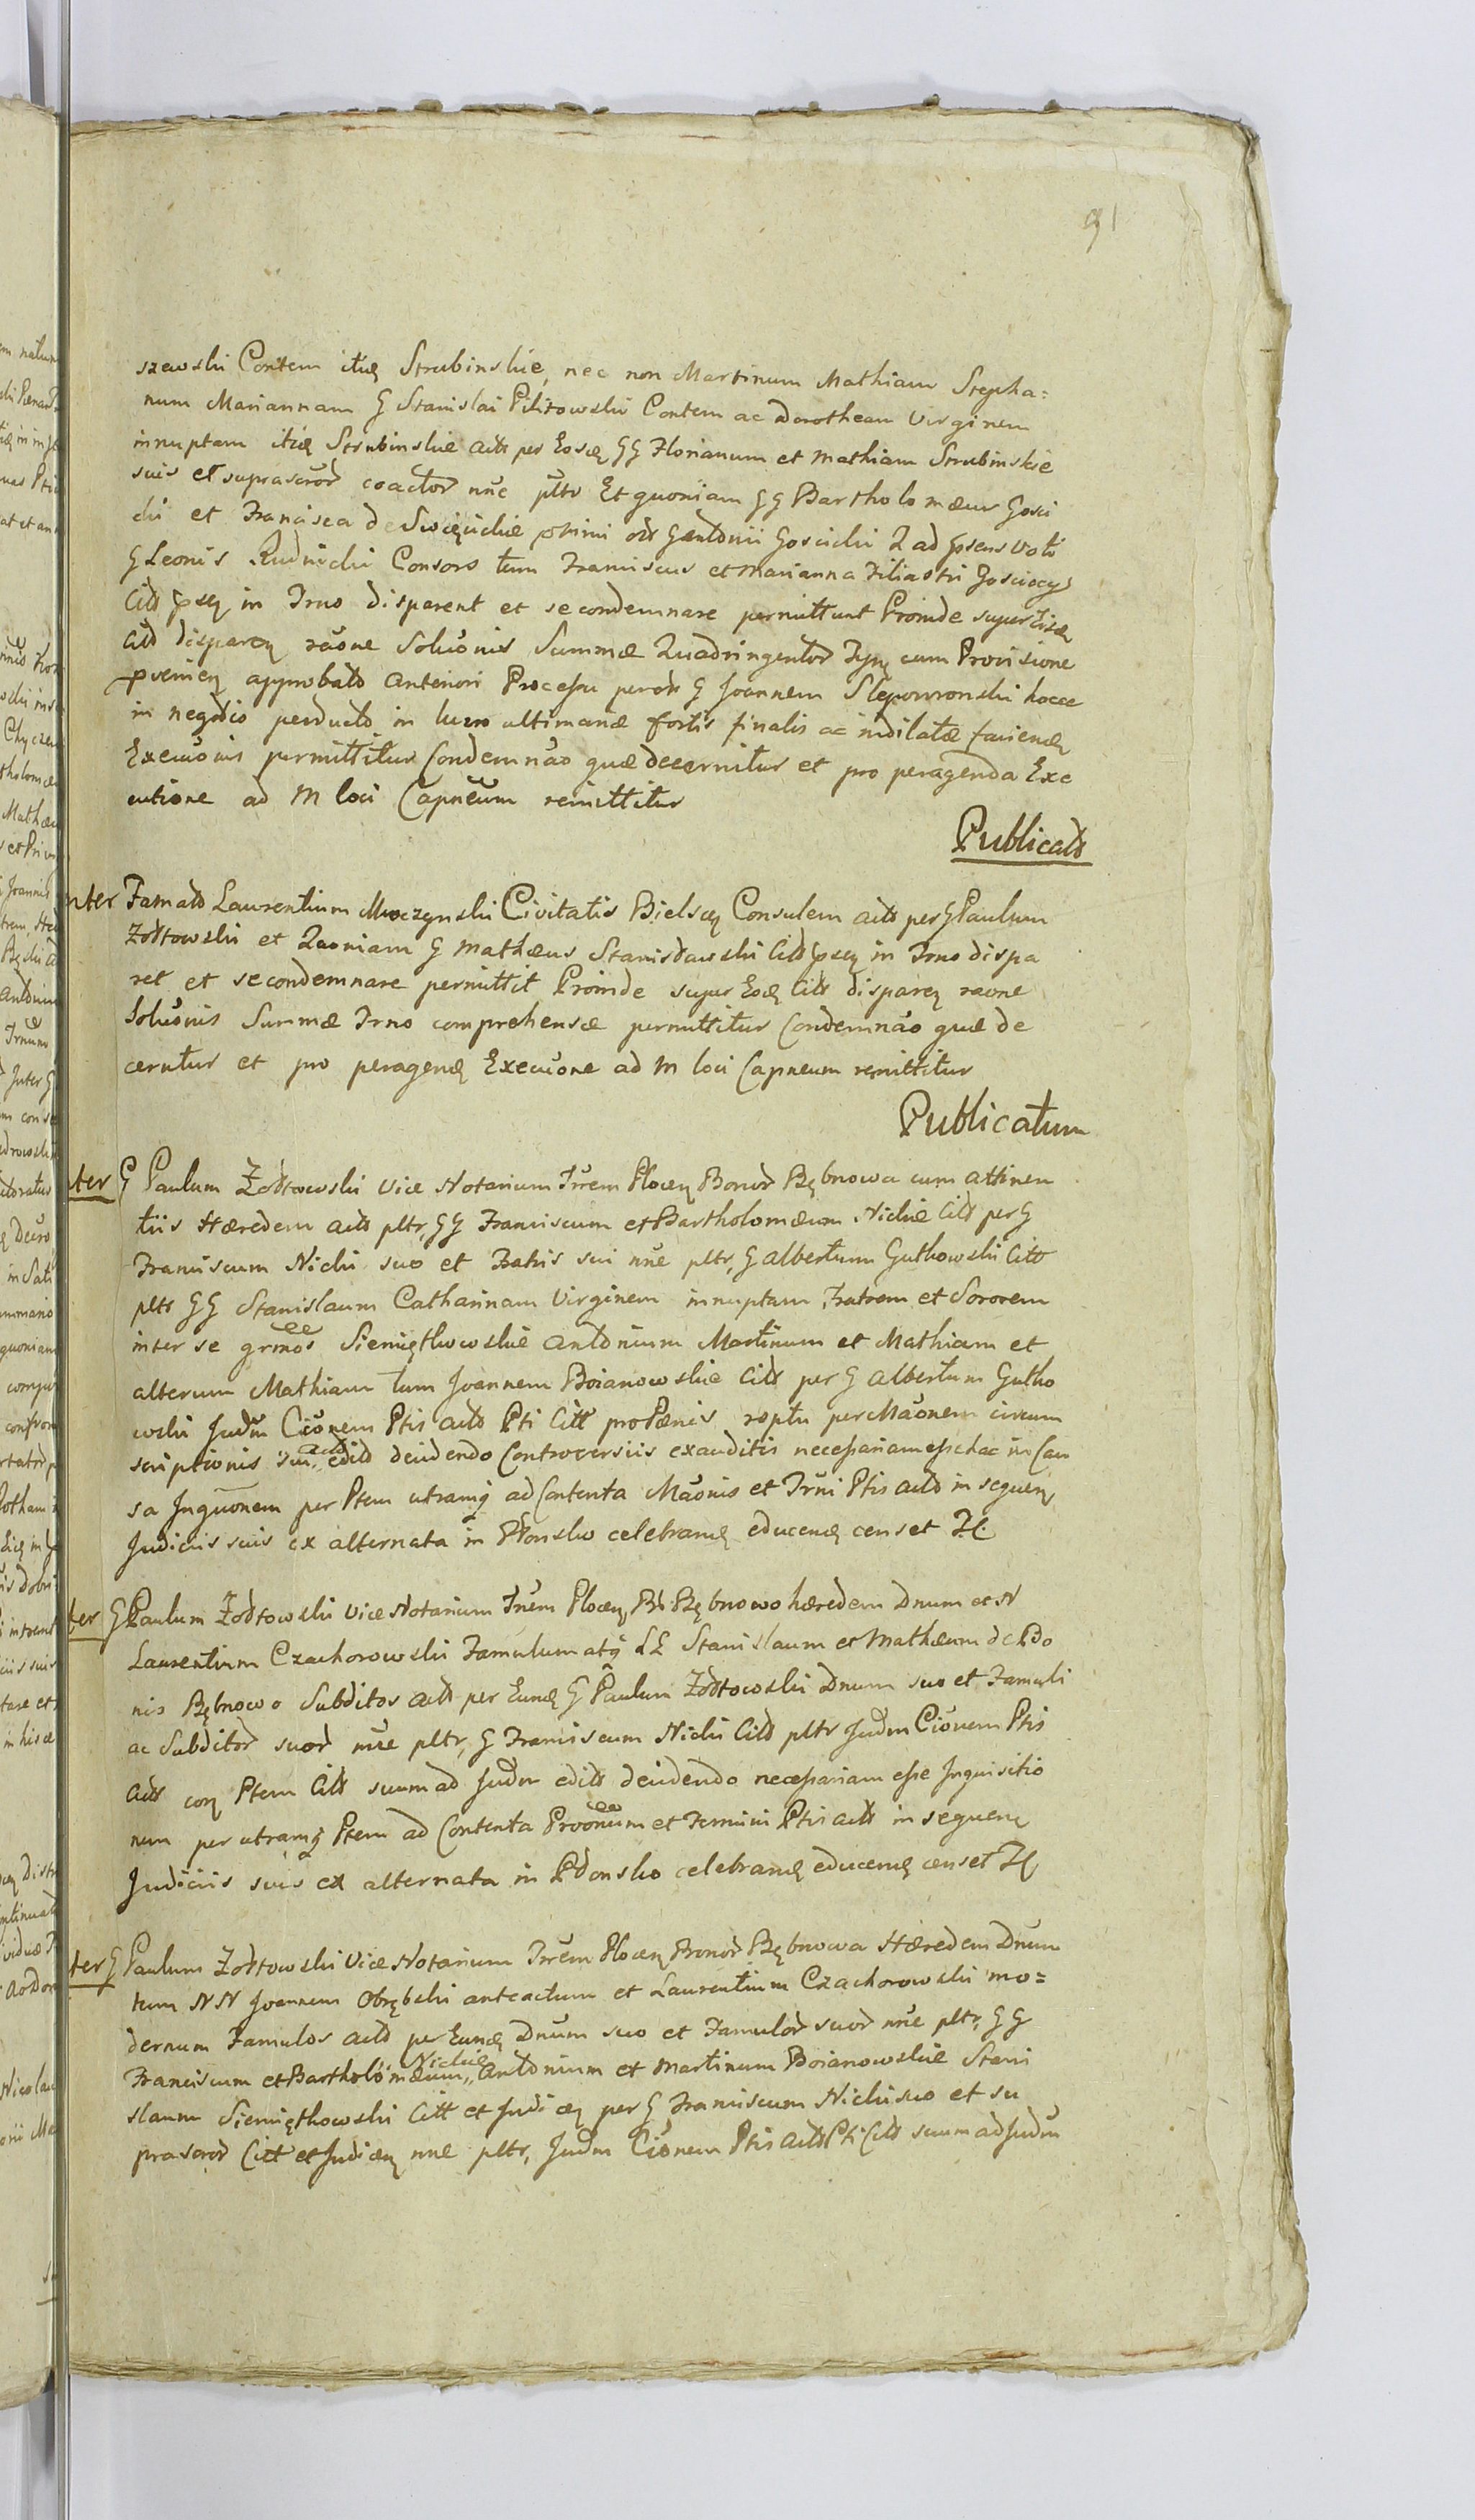 91
szewski Contem itūq Strubinskie, nec non Martinum Mathiam Stepha=
num Mariannam G Stanislai Pilitowski Contem ac Dorotheam Virginem
innuptam itiæ Strubinskie acts per Eosq GG Florianum et Mathiam Strubinskie
suis et suprascror coactor nūc pltr Et quoniam GG Bartholomæus Gosci
cki et Francisca de Swięcickie primi ols G Antonii Goscicki 2 ad psens voti
G Leonis Rudnicki Consors tum Franciscus et Marianna Filiastri Gosciccy
Citt psq in Trno disparent et se condemnare permittunt Proinde super
Citt disparen raōne Soluōnis Summæ Quadringentor Typ cum Provisione
pvenien approbato anteriori Processu per ols G Joannem Slepowronski hocce
in negotio perducto in lucro ultimariæ fortis finalis ac indilatæ faciendæ
Execuōnis permittitur Condemnāo quæ decernitur et pro peragenda Exe
cutione ad M loci Capnēum remittitur
Publicats
nter Famato Laurentium Moczynski Civitatis Bielscen Consulem acto per G Paulum
Zołtowski et Quoniam G Mathæus Stanisławski Citt psq in Trno dispa
ret et se condemnare permittit Proinde super Eoq Citt disparen raone
Soluōnis Summæ Trno comprehensæ permittitur Condemnāo quæ de
cernitur et pro peragenq Execuōne ad M loci Capneum remittitur
Publicatum
ter G Paulum Zołtowski Vice Notarium Trrem Plocen Bonor Bębnowa cum attinen
tiis Hæredem acto pltr, GG Franciscum et Bartholomæum Nickie Citt per G
Franciscum Nicki suo et Fratris sui nūe pltr, G Albertum Gutkowski Citt
pltr GG Stanislaum Catharinam Virginem innuptam Fratrem et Sororem
inter se grmōs Siemiętkowskie Antonium Martinum et Mathiam et
alterum Mathiam tum Joannem Boianowskie Citt per G Albertum Gutko
wski Judm Ciōnem Ptis acto Pti Citt pro Pœnis reptu per Māonem circum
scriptionis sui acto edito decidendo Controversiis exauditis necessariam esse hac in Cau
sa Inquōnem per Ptem utramq ad Contenta Māonis et Trni Ptis acto in sequen
Judiciis suis ex alternata in Płonsko celebranq educenq censet Il
ter G Paulum Zołtowski Vice Notarium Trrem Plocen, Bo Bębnowo hæredem Dnum et N
Laurentium Czachorowski Famulum atq LL Stanislaum et Mathæum de Bo
nis Bębnowo Subditos acto per Eunq G Paulum Zołtowski Dnum suo et Famuli
ac Subditor suor nūe pltr, G Franciscum Nicki Citt pltr Judm Ciōnem Ptis
acto con Ptem Citt suum ad Judm edito decidendo necessariam esse Inquisitio
nem per utramq Ptem ad Contenta Provōnum et Termini Ptis acto in sequenq
Judiciis suis ex alternata in Płonsko celebranq educenq censet Il
ter G Paulum Zołtowski Vice Notarium Trrem Plocen Bonor Bębnowa Hæredem Dnum
tum NN Joannem Obrębski anteactum et Laurentium Czachorowski mo=
dernum Famulos acto per Eunq Dnum suo et Famulor suor nūe pltr, GG
Franciscum et Bartholomæum Nickie Antonium et Martinum Boianowskie Stani
slaum Siemiętkowski Citt et Judicen per G Franciscum Nicki suo et su
prascror Citt et Judicen nūe pltr, Judm Ciōnem Ptis acto Pti Citt suum ad Judm